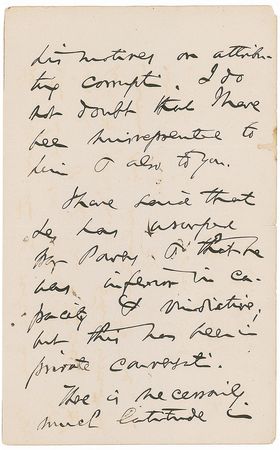 his motives or attribu-
ting corrupt. I do
not doubt that I have
been misrepresented to
him & also to you.
I have said that
he has usurped
Powers & that he
was inferior in ca-
pacity & vindictive,
but this has been in
private conversati.
There is necessarily
much latitude in